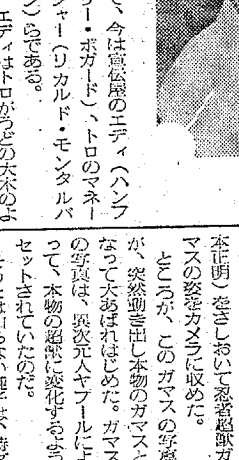 、今は宣伝屋のエディ（ハンフ
リー・ボガード）、トロのマネー
ジャー（リカルド・モンタルバ
ン）らである。
エディはトロがうどの大木のよ
本正明）をさしおいて忍者超獣ガ
マスの姿をカメラに収めた。
ところが、このガマスの写真
が、突然動き出し本物のガマスと
なって大あばれはじめた。ガマス
の写真は、異次元人ヤプールによ
って、本物の超獣に変化するよう
セットされていたのだ。